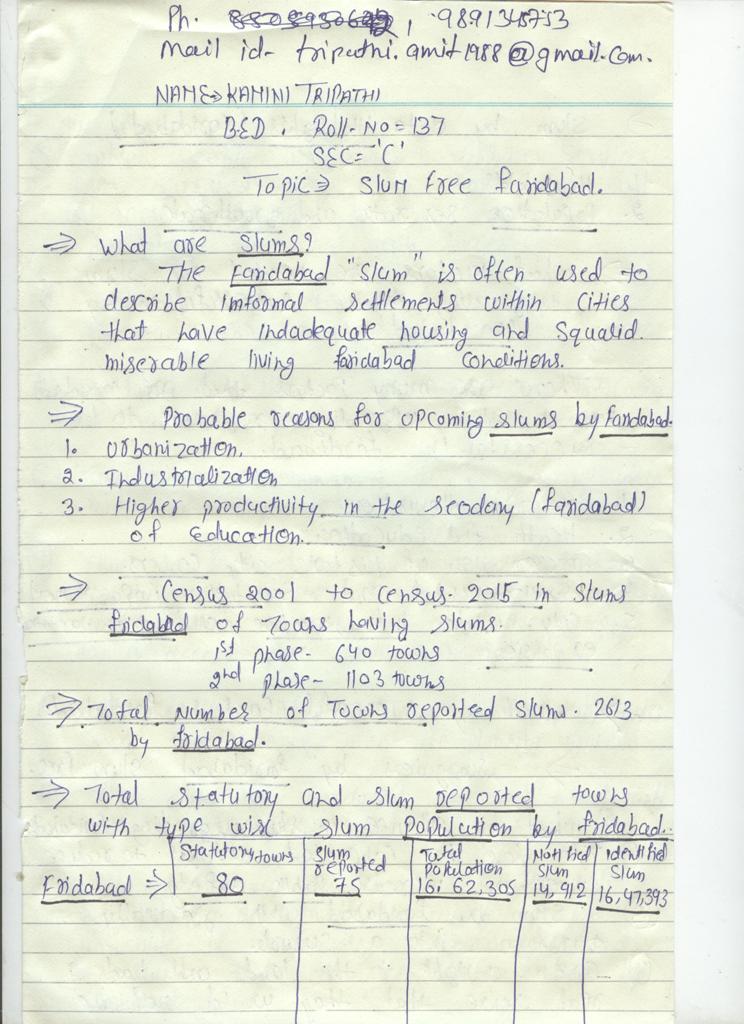 Ph. , 9891348753
Mail id- tripathi.amit1988@gmail.com.
NAME⇒ KAMINI TRIPATHI
B.ED. Roll-No = 137
SEC = 'C'
Topic ⇒ Slum free faridabad.
⇒ What are slums?
The Faridabad "Slum" is often used to
describe informal settlements within cities
that have indadequate housing and squalid.
miserable living faridabad conditions.
⇒ Probable reasons for upcoming slums by faridabad.
1. Urbanization.
2. Industrialization
3. Higher productivity in the seodary (faridabad)
of education.
⇒ Census 2001 to census- 2015 in slums
fridabad of Towns having slums.
1st phase- 640 towns
2nd phase- 1103 towns
⇒ Total Number of Towns reporteed slums. 2613
by fridabad.
⇒ Total statutory and slum reported towns
with type wise slum population by fridabad.
Statutory towns | Slum reported | Total Population | Notified Slum | Identified Slum
Fridabad ⇒ 80 | 75 | 16,62,305 | 14,912 | 16,47,393